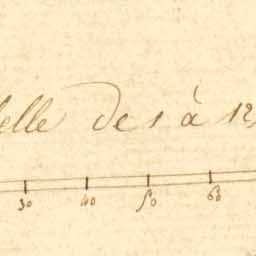 elle de 1 à 12
30 40 50 60